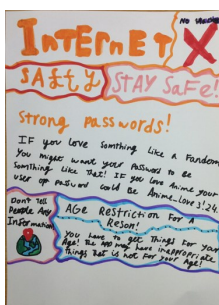 NO
INTErNET X
SAfty STAY SaFe!
Strong Passwords!
IF you Love Somthing Like a Fandom
You might want your Password to be
Somthing Like That! IF you Love Anime your
Password could Be Anime_Love
Don't Tell
People Any
Information
AGe Restriction For A
Reson!
You have to get Things For your
Age! The APP may have inappropriate
Things that is not For your Age!